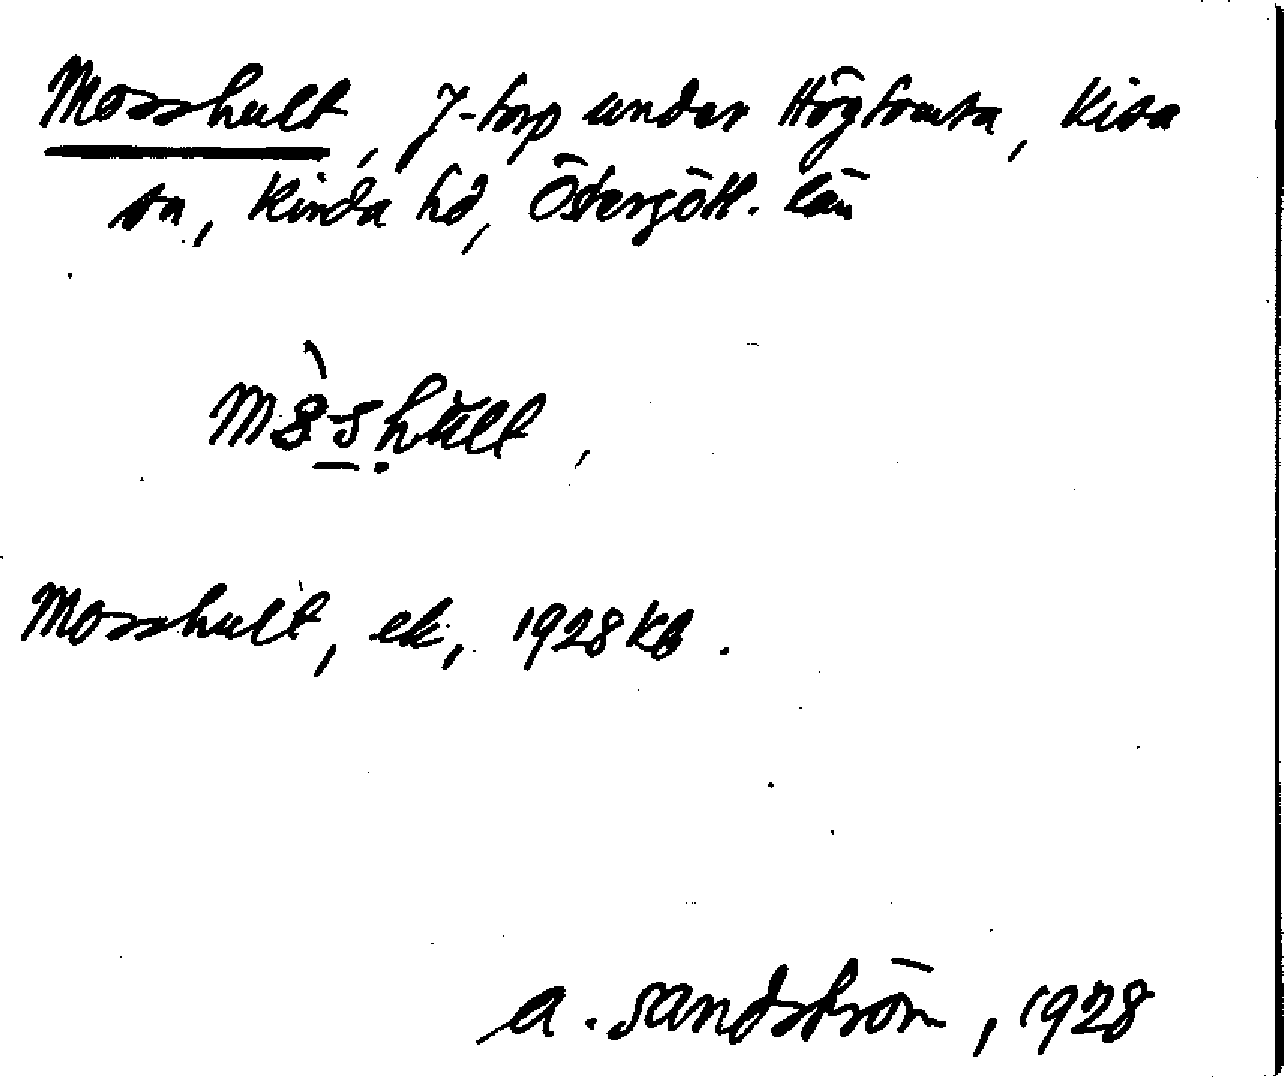 Mosshult, J-torp under Högtomta, Kisa
sn, Kinda hd, Östergötl. län
Mosshult, ek, 1928 KB.
A. Sandström, 1928